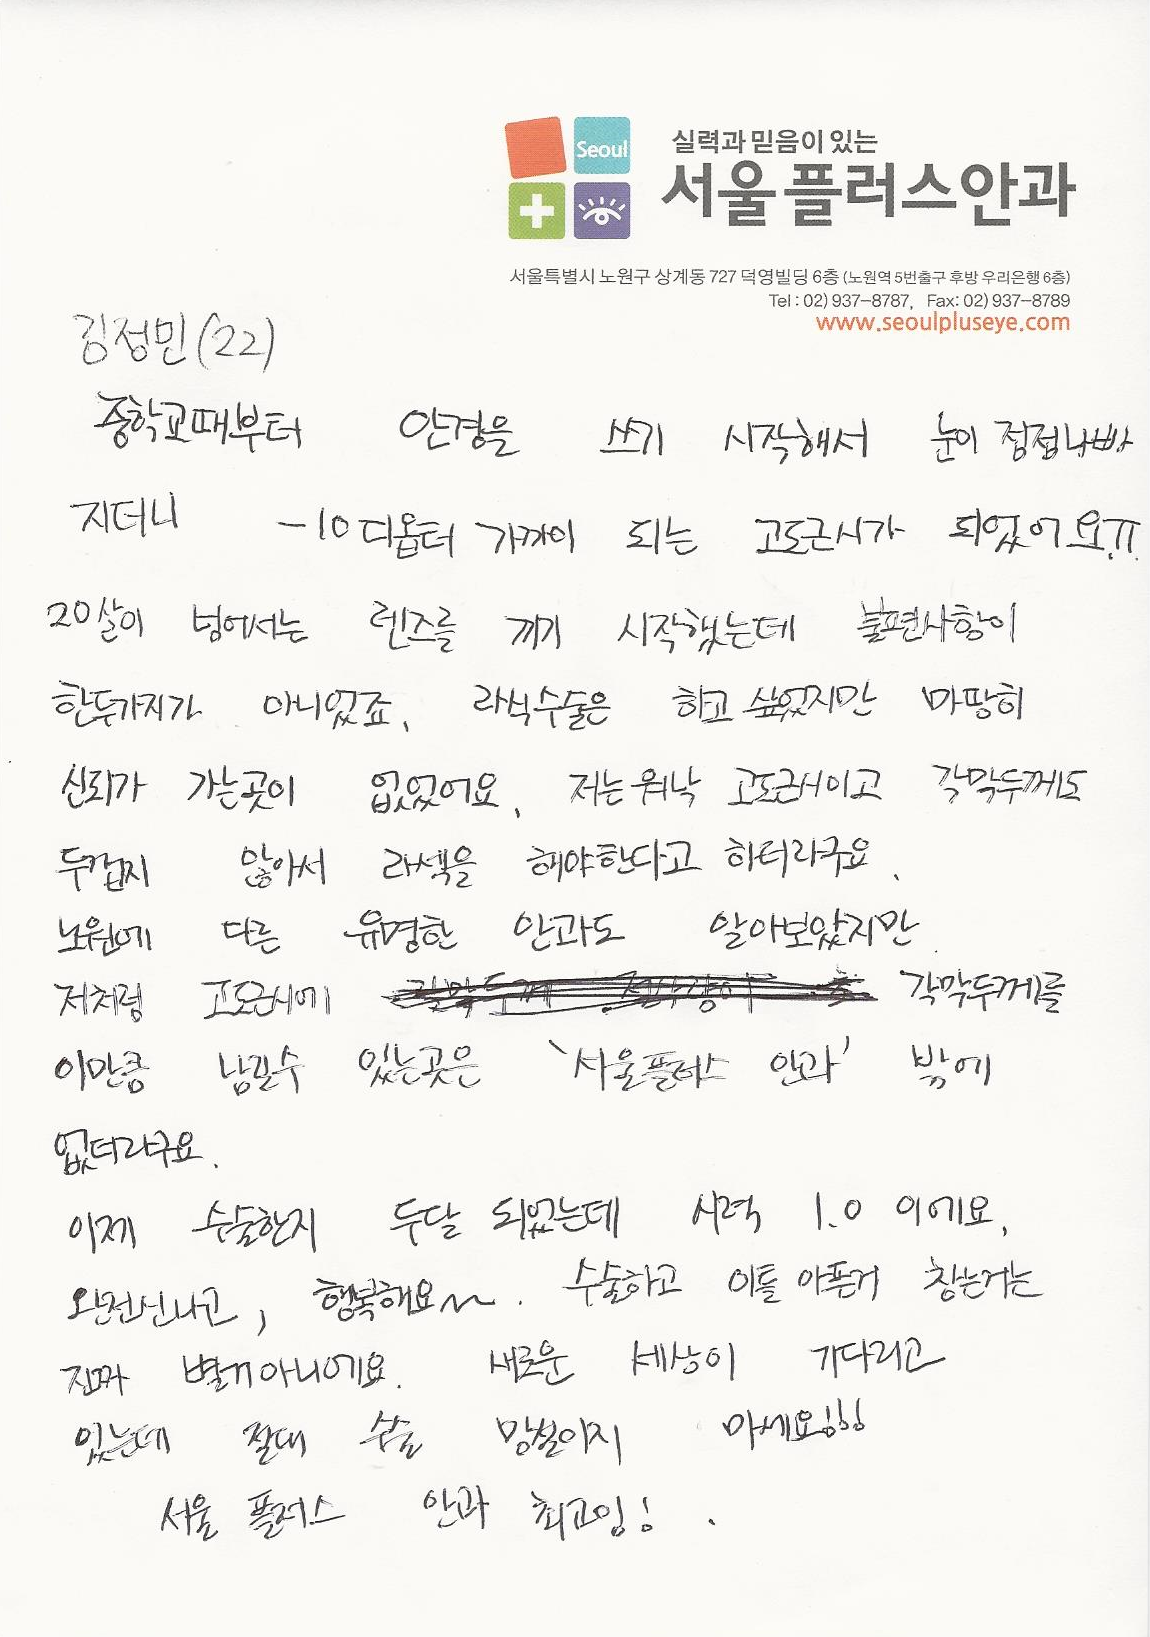 Seoul
실력과 믿음이 있는
서울플러스안과
서울특별시 노원구 상계동 727 덕영빌딩 6층 (노원역 5번출구 후방 우리은행 6층)
Tel : 02) 937-8787, Fax: 02) 937-8789
www.seoulpluseye.com
김정민(22)
중학교때부터 안경을 쓰기 시작해서 눈이 점점나빠
지더니 -10디옵터 가까이 되는 고도근시가 되었어요ㅠ
20살이 넘어서는 렌즈를 끼기 시작했는데 불편사항이
한두가지가 아니었죠. 라식수술은 하고싶었지만 마땅히
신뢰가 가는곳이 없었어요. 저는워낙 고도근시이고 각막두께도
두껍지 않아서 라섹을 해야한다고 하더라구요.
노원에 다른 유명한 안과도 알아보았지만
저처럼 고도근시에 각막두께를
이만큼 남길수 있는곳은 '서울플러스 안과' 밖에
없더라구요.
이제 수술한지 두달 되었는데 시력 1.0 이에요.
완전신나고, 행복해요~. 수술하고 이틀 아픈거 참는거는
진짜 별거아니에요. 새로운 세상이 기다리고
있는데 절대 수술 망설이지 마세요!!!
서울 플러스 안과 최고임! .